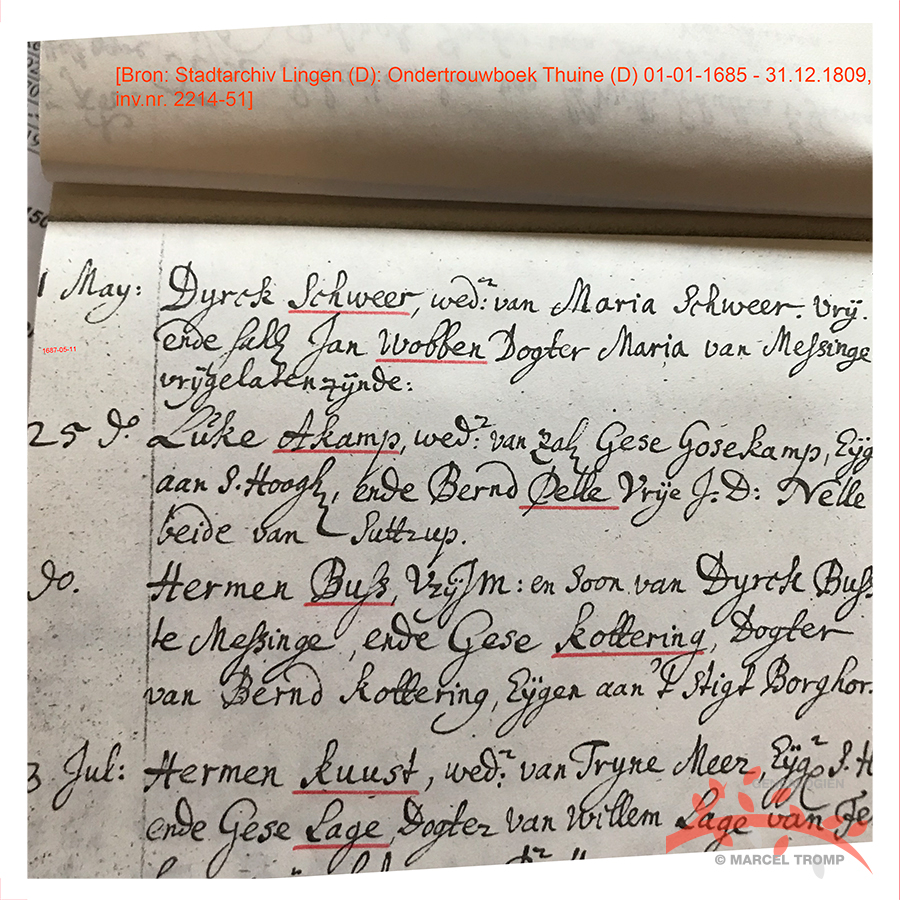 [Bron: Stadtarchiv Lingen (D): Ondertrouwboek Thuine (D) 01-01-1685 - 31.12.1809,
inv.nr. 2214-51]
1 May: Dyrck Schweer, wedr: van Maria Schweer. vrij.
1687-05-11
ende sall Jan Wobben Dogter Maria van Messinge
vrijgelaten zijnde:
25 do. Lüke Akamp, wedr: van zal Gese Gosekamp, Eijg
aan S. Hoogh, ende Bernd Pelle Vrije J. D: Nelle
beide van Suttrup.
do. Hermen Buss, VrijJm: en Soon van Dyrck Buss
te Messinge, ende Gese Kottering, Dogter
van Bernd Kottering, Eijgen aan 't Stigt Borghor.
3 Jul: Hermen Kuust, wedr: van Tryne Meer, Eijg S. H
ende Gese Lage, Dogter van Willem Lage van Fe
© MARCEL TROMP